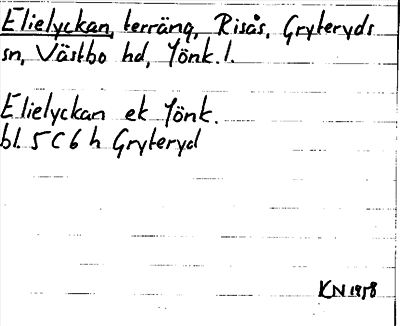 Elielyckan, terräng, Risås, Gryteryds
sn, Västbo hd, Jönk. l.
Elielyckan ek Jönk.
bl. 5 C 6 h Gryteryd
KN 1958